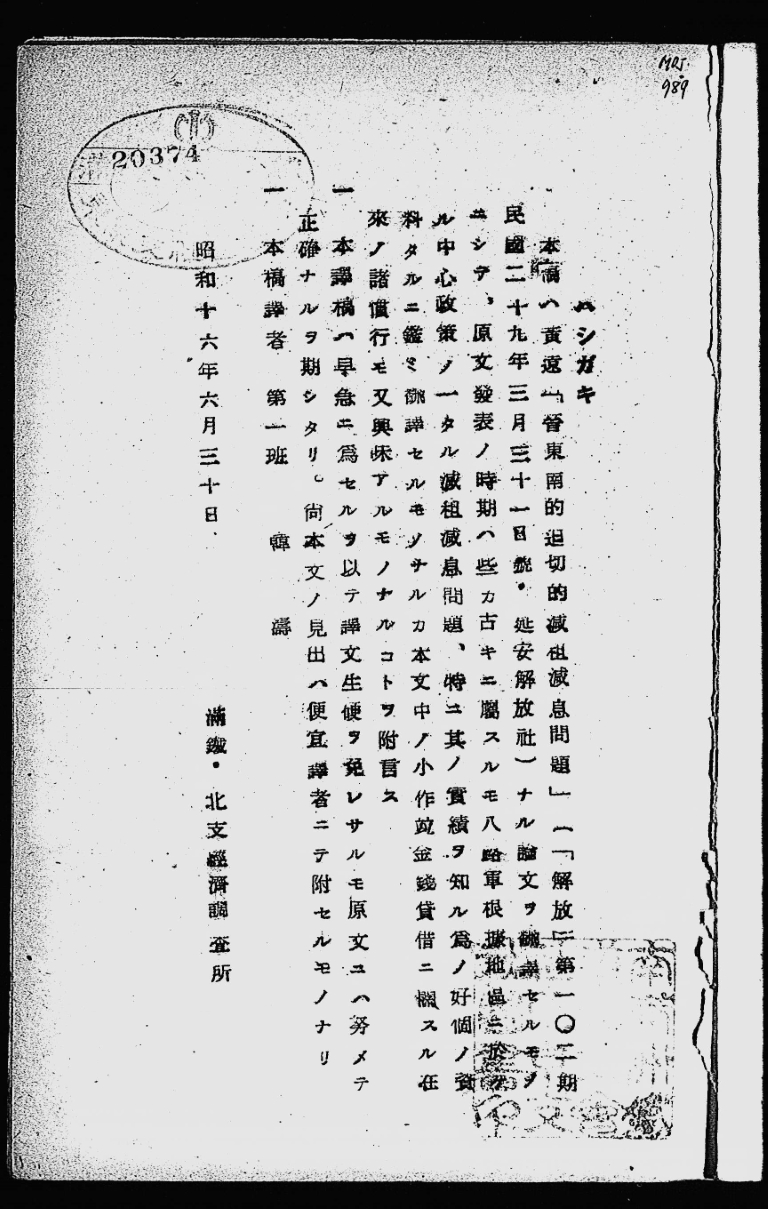 MOJ.
989
20374
ハシガキ
本稿ハ黃遠「晉東南的迫切的減租減息問題」(「解放」第一〇二期
民國二十九年三月三十一日號・延安解放社)ナル論文ヲ飜譯セルモノ
ニシテ、原文發表ノ時期ハ些カ古キニ屬スルモ八路軍根據地區ニ於ケ
ル中心政策ノ一タル減租減息問題、特ニ其ノ實績ヲ知ル爲ノ好個ノ資
料タルニ鑑ミ飜譯セルモノナルカ本文中ノ小作竝金錢貸借ニ關スル在
來ノ諸慣行モ又興味アルモノナルコトヲ附言ス
一 本譯稿ハ早急ニ爲セルヲ以テ譯文生硬ヲ免レサルモ原文ニハ努メテ
正確ナルヲ期シタリ。尙本文ノ見出ハ便宜譯者ニテ附セルモノナリ
一 本稿譯者 第一班 韓 濤
昭和十六年六月三十日、
滿鐵・北支經濟調査所